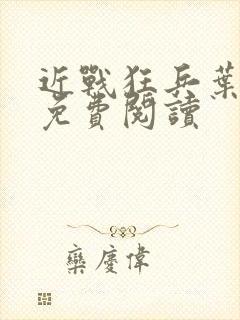 近戰狂兵葉
免費閱讀
欒慶偉